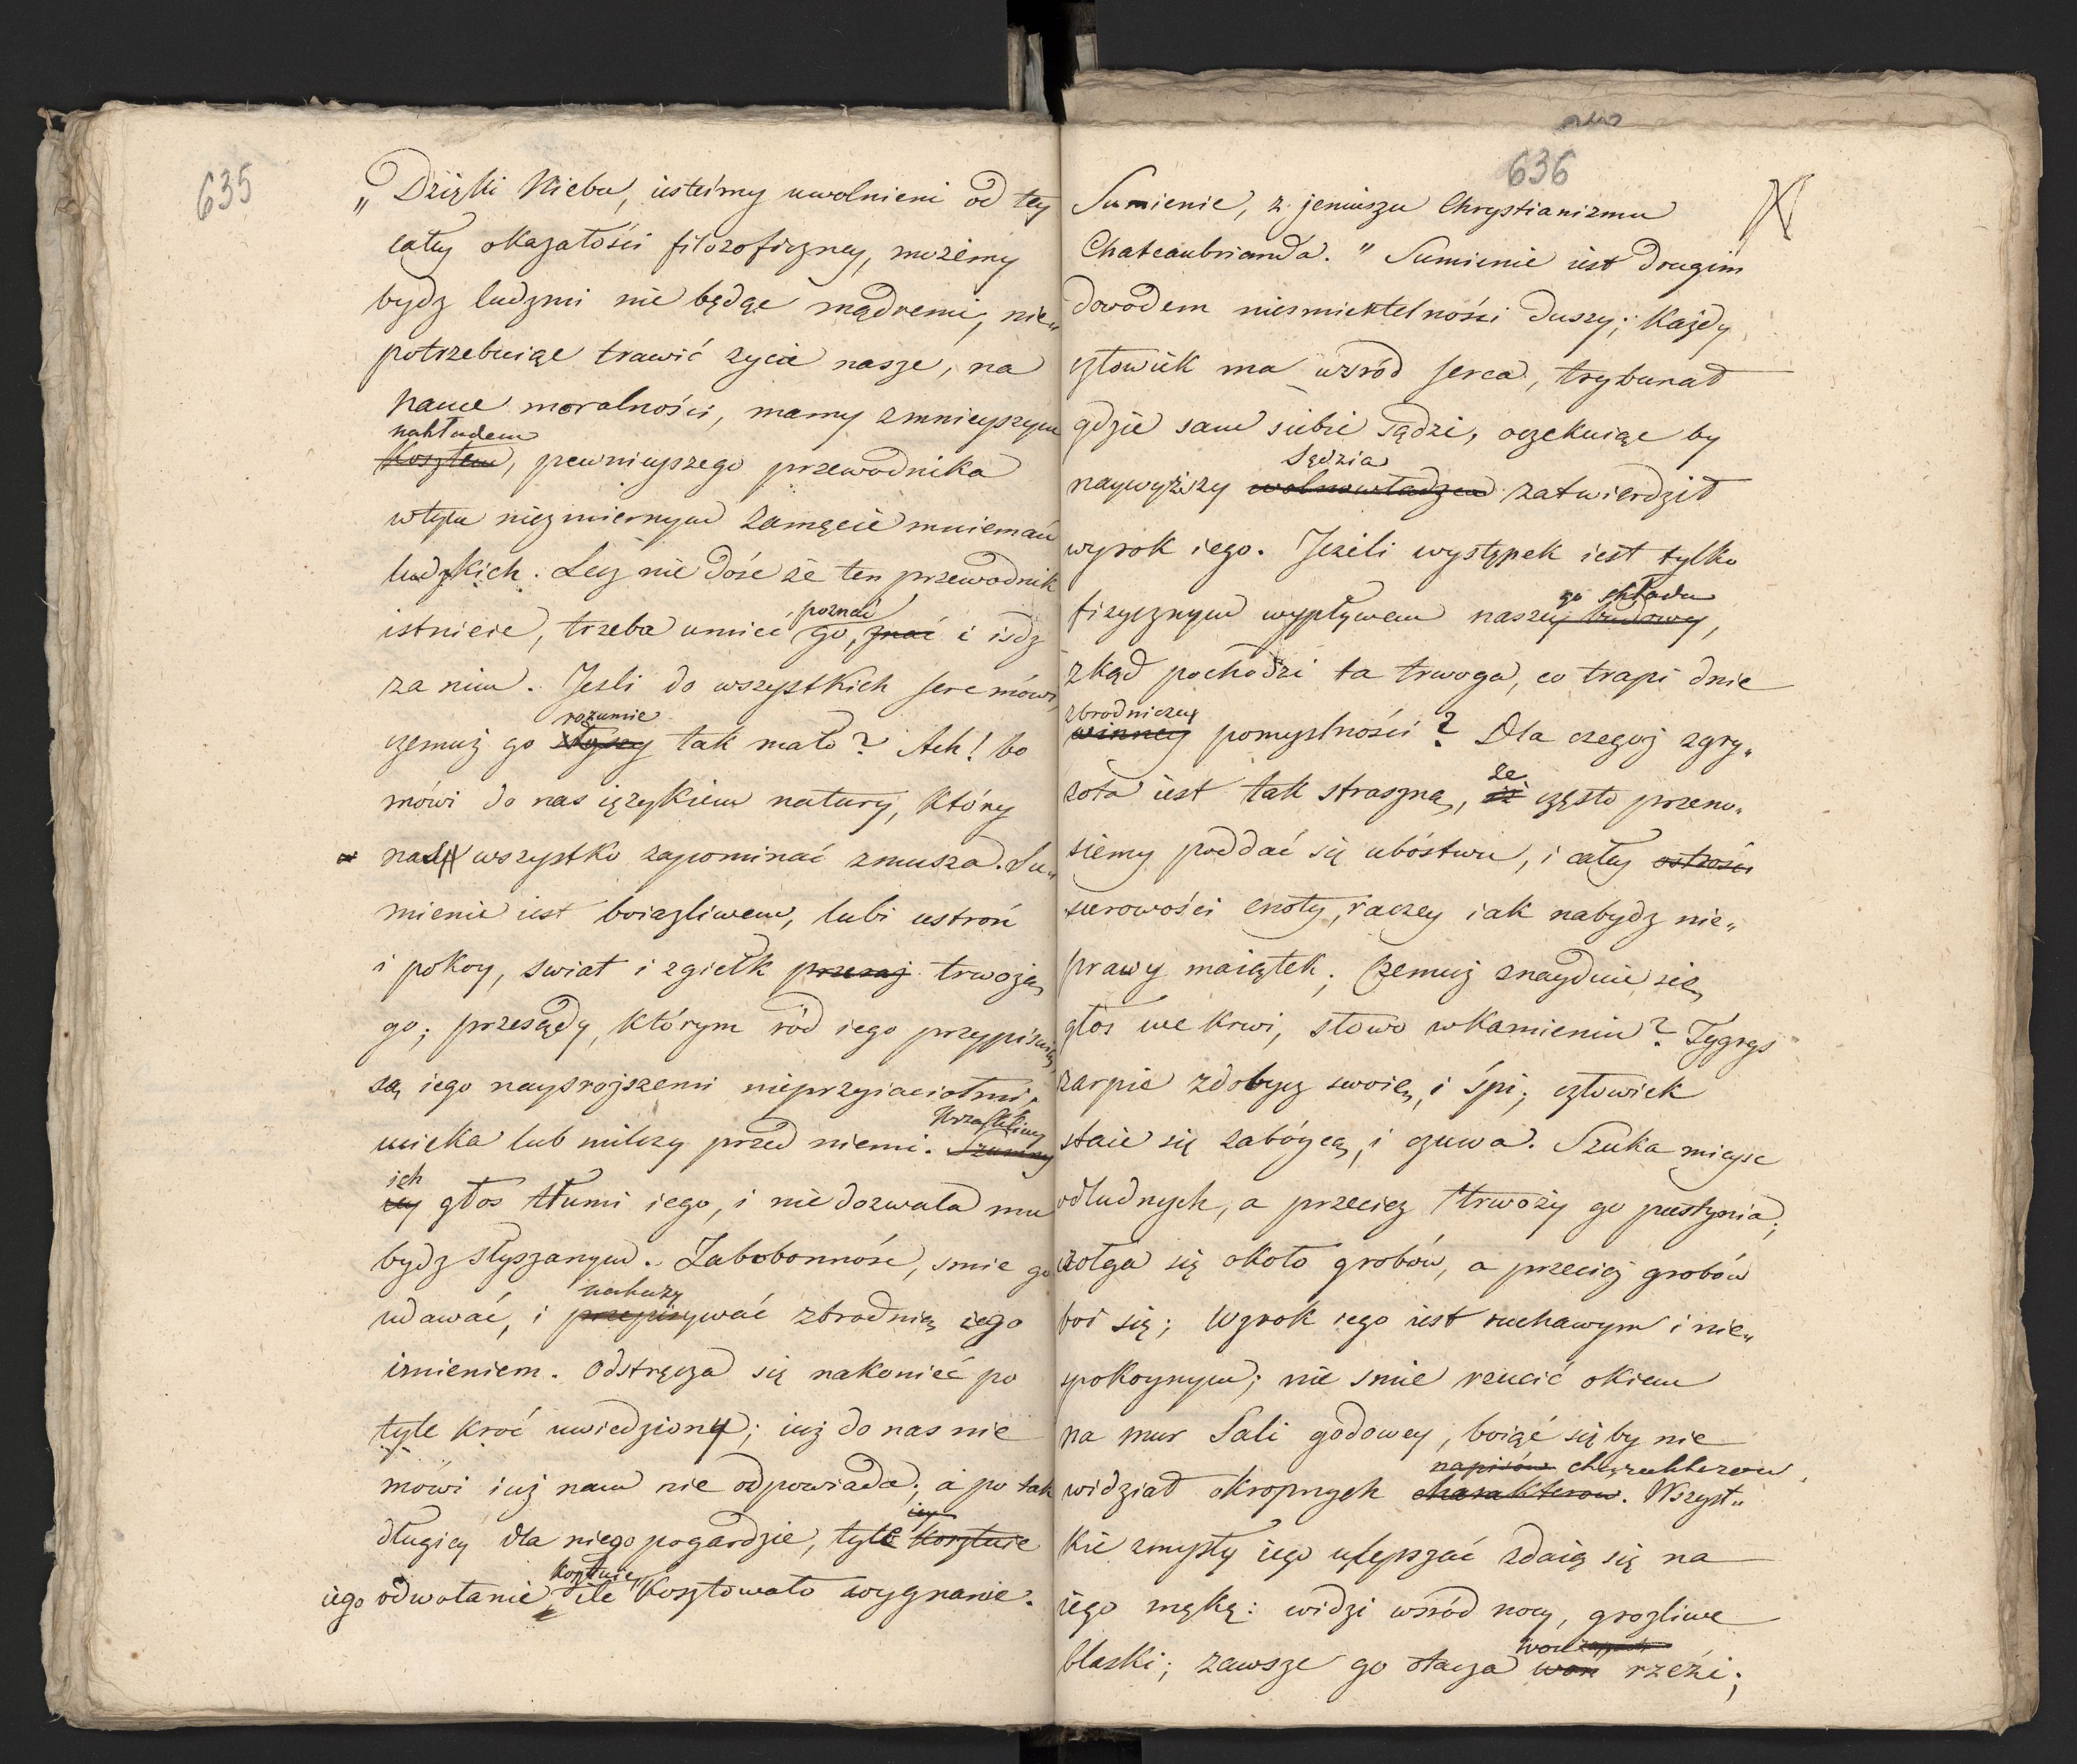 635
„Dzięki Niebu, iesteśmy uwolnieni od tey
całey okazałości filozoficzney, możemy
bydz ludzmi nie będąc mądremi, nie„
potrzebuiąc trawić życia nasze, na
nauce moralności, mamy zmnieyszym
nakładem
kosztem, pewnieyszego przewodnika
wtym niezmiernym zamęcie mniemań
ludzkich. Lecz nie dość że ten przewodnik
poznać
istnieie, trzeba umieć go, znać i iśdz
za nim. Jesli do wszystkich serc mówi,
rozumie
czemuż go słyszy tak mało? Ach! bo
mówi do nas ięzykiem natury, który
nas wszystko zapominać zmusza. Su„
mienie iest boiazliwem, lubi ustroń
i pokoy, swiat i zgiełk trwożą
go; przesądy, którym ród iego przypisuią,
są iego naysrojszemi nieprzyiaciołmi,
ucieka lub milczy przed niemi. Szumny
Wrzaskliwy
ich
iey głos tłumi iego, i nie dozwala mu
bydz słyszanym. Zabobonność, smie go
udawać, i przepisywać zbrodnią iego
imieniem. Odstręcza się nakonieć po
tyle kroć uwiedziony; iuż do nas nie
mówi iuż nam nie odpowiada; a po tak
długiey dla niego pogardzie, tyle kosztuie
kosztuie,
iego odwołanie, ile kosztowało wygnanie.
636
Sumienie, z jeniuszu Chrystianizmu
Chateaubrianda. „Sumienie iest drugim
dowodem niesmiertelności duszy; każdy
człowiek ma wśród serca, trybunał
gdzie sam siebie sądzi, oczekuiąc by
Sędzia
naywyższy wolnowładzca zatwierdził
wyrok iego. Jeżeli występek iest tylko
go składu
fizycznym wypływem naszey budowy,
zkąd pochodzi ta trwoga, co trapi dnie
zbrodniczey
winney pomyslności? Dla czegoż zgry„
że
zota iest tak straszną, iż często przeno„
siemy poddać się ubóstwu, i całey ostrości
surowości cnoty, raczey iak nabydz nie„
prawy maiątek; czemuż znayduie się
głos we krwi, słowo wkamieniu? Tygrys
zarpie zdobycz swoię, i śpi; człowiek
staie się zabóycą, i czuwa. Szuka mieysc
odludnych, a przeciez trwoży go pustynia;
czołga się około grobów, a przecież grobów
boi się; Wzrok iego iest ruchawym i nie„
spokoynym; nie smie rzucić okiem
na mur Sali godowey, boiąć się by nie
napisów charakterow
widział okropnych charakterow. Wszyst„
kie zmysły iego ulepszać zdaią się na
iego mękę: widzi wśród nocy, grozliwe
blaski; zawsze go otacza woń rzezi;